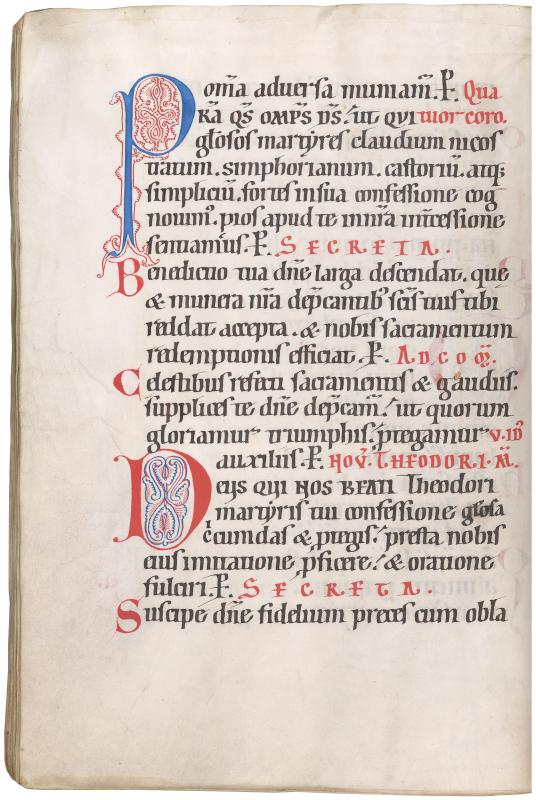 oma adversa muniam̄. P. Qua
P R̄A Q̄S OMPS D̄S. ut QVI tuor coro.
gl̄osos martyres claudium nicos
tratum. simphorianum. castoriū. atq;
simpliciū. fortes in sua confessione cog
novim'. pios apud te in nr̄a int̄cessione
sentiamus. P. SECRETA.
Benedictio tua dn̄e larga descendat. que
& munera nr̄a dep̄cantib' sc̄is tuis tibi
reddat accepta. & nobis sacramentum
redemptionis efficiat. P. AD CO Q̄.
Celestibus refecti sacramentis & gaudiis.
supplices te dn̄e dep̄cam̄. ut quorum
gloriamur triumphis. p̄tegamur V. ID'
auxiliis. P. NOV̄. THEODORI. M̄.
D EUS QUI NOS BEATI Theodori
martyris tui confessione gl̄osa
c̄cumdas & p̄tegis. p̄sta nobis
eius imitatione p̄ficere. & oratione
fulciri. P. SECRETA.
Suscipe dn̄e fidelium preces cum obla